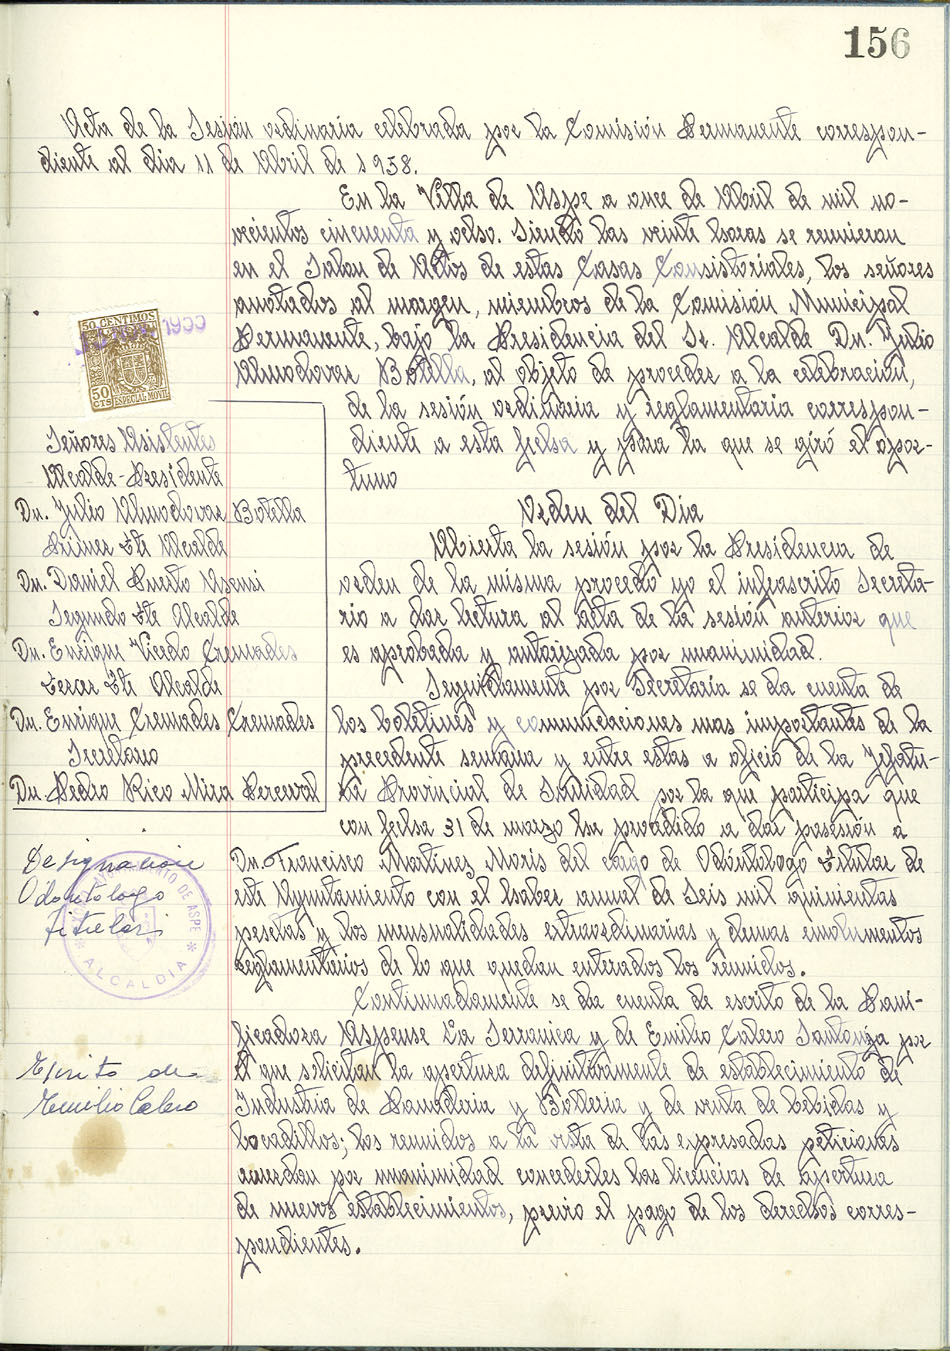 156
Acta de la Sesión ordinaria celebrada por la Comisión Permanente correspon-
diente al dia 11 de Abril de 1958.
En la Villa de Aspe a once de Abril de mil no-
vecientos cincuenta y ocho. Siendo las veinte horas se reunieron
en el Salon de Actos de estas Casas Consistoriales, los señores
anotados al margen, miembros de la Comisión Municipal
Permanente, bajo la Presidencia del Sr. Alcalde Dn. Julio
Almodovar Botella, al objeto de proceder a la celebración,
de la sesión ordinaria y reglamentaria correspon-
diente a esta fecha y para la que se giró el opor-
tuno
Orden del Dia
Abierta la sesión por la Presidencia de
orden de la misma procedo yo el infrascrito Secreta-
rio a dar lectura al acta de la sesión anterior que
es aprobada y autorizada por unanimidad.
Seguidamente por Secretaria se da cuenta de
los boletines y comunicaciones mas importantes de la
precedente semana y entre estas a oficio de la Jefatu-
ra Provincial de Sanidad por la que participa que
con fecha 31 de marzo ha procedido a dar posesión a
Dn. Francisco Martines Moris del cargo de Odóntologo titular de
este Ayuntamiento con el haber anual de Seis mil quinientas
pesetas y las mensualidades extraordinarias y demas emolumentos
reglamentarios de lo que quedan enterados los reunidos.
Continuadamente se da cuenta de escrito de la Pani-
ficadora Aspense La Serranica y de Emilio Calero Santonja por
el que solicitan la apertura definitivamente de establecimiento de
Industria de Panaderia y Bolleria y de venta de bebidas y
bocadillos; los reunidos a la vista de las expresadas peticiones
acuerdan por unanimidad concederles las licencias de apertura
de nuevos establecimientos, previo el pago de los derechos corres-
pondientes.
50 CENTIMOS
50
CTS ESPECIAL MOVIL
Señores Asistentes
Alcalde-Presidente
Dn. Julio Almodovar Botella
Primer Tte Alcalde
Dn. Daniel Puerto Asensi
Segundo Tte Alcalde
Dn. Enrique Vicedo Cremades
Tercer Tte Alcalde
Dn. Enrique Cremades Cremades
Secretario
Dn Pedro Rico Mira Perceval
Designacion
Odontologo
titular
AYUNTAMIENTO DE ASPE
* ALCALDIA *
Escrito de
Emilio Calero